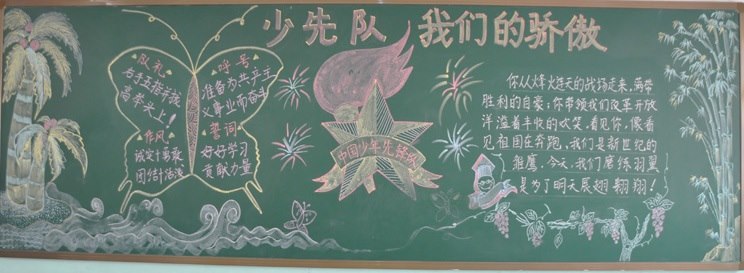 少先队 我们的骄傲
队礼
右手五指并拢
高举头上!
作风
诚实勇敢
团结活泼
呼号
准备为共产主
义事业而奋斗
誓词
好好学习
贡献力量
中国少年先锋队
你从烽火连天的战场走来,满带
胜利的自豪,你带领我们改革开放
洋溢着丰收的欢笑,看见你,像看
见祖国在奔跑,我们是新世纪的
雏鹰,今天,我们磨练羽翼
是为了明天展翅翱翔!